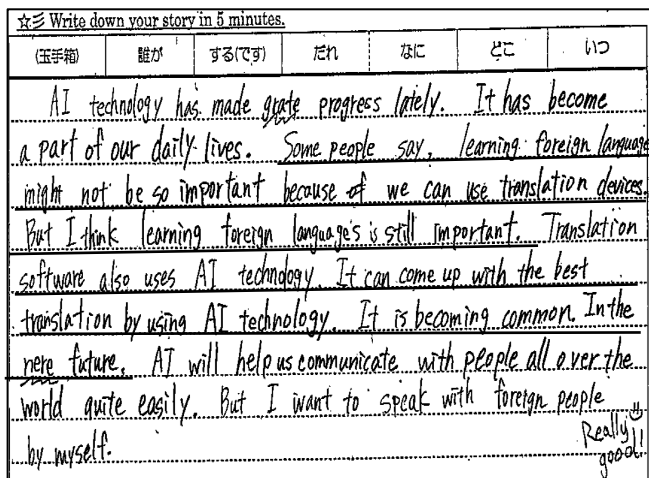 ☆彡 Write down your story in 5 minutes.
(玉手箱) 誰が する(です) だれ なに どこ いつ
AI technology has made grate progress lately. It has become
a part of our daily lives. Some people say, learning foreign language
might not be so important because of we can use translation devices.
But I think learning foreign language's is still important. Translation
software also uses AI technology. It can come up with the best
translation by using AI technology. It is becoming common. In the
nere future, AI will help us communicate with people all over the
world quite easily. But I want to speak with foreign people
by myself.
Really
good!!